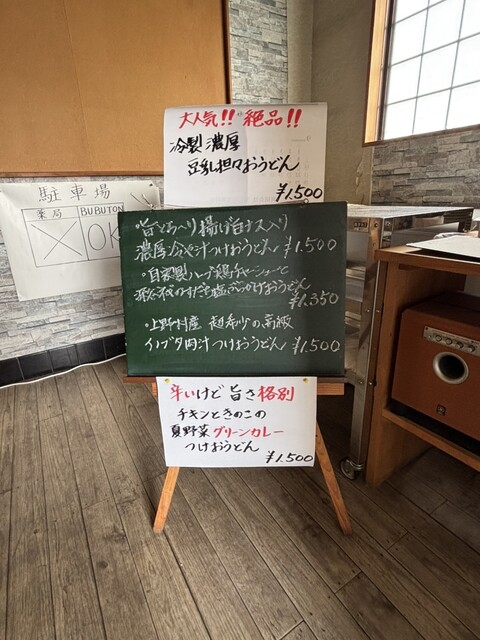 大人気!! 絶品!!
冷製 濃厚
豆乳担々おうどん
¥1.500
駐車場
薬局 BUBUTON
OK
揚げ旨ナス入り
濃厚冷や汁つけおうどん ¥1.500
・自家製ハーブ鶏チャーシューと
すだち塩ぶっかけおうどん
¥1.350
・上野村産 超希少の高級
イノブタ肉汁つけおうどん ¥1.500
辛いけど 旨さ格別
チキンときのこの
夏野菜グリーンカレー
つけおうどん
¥1.500